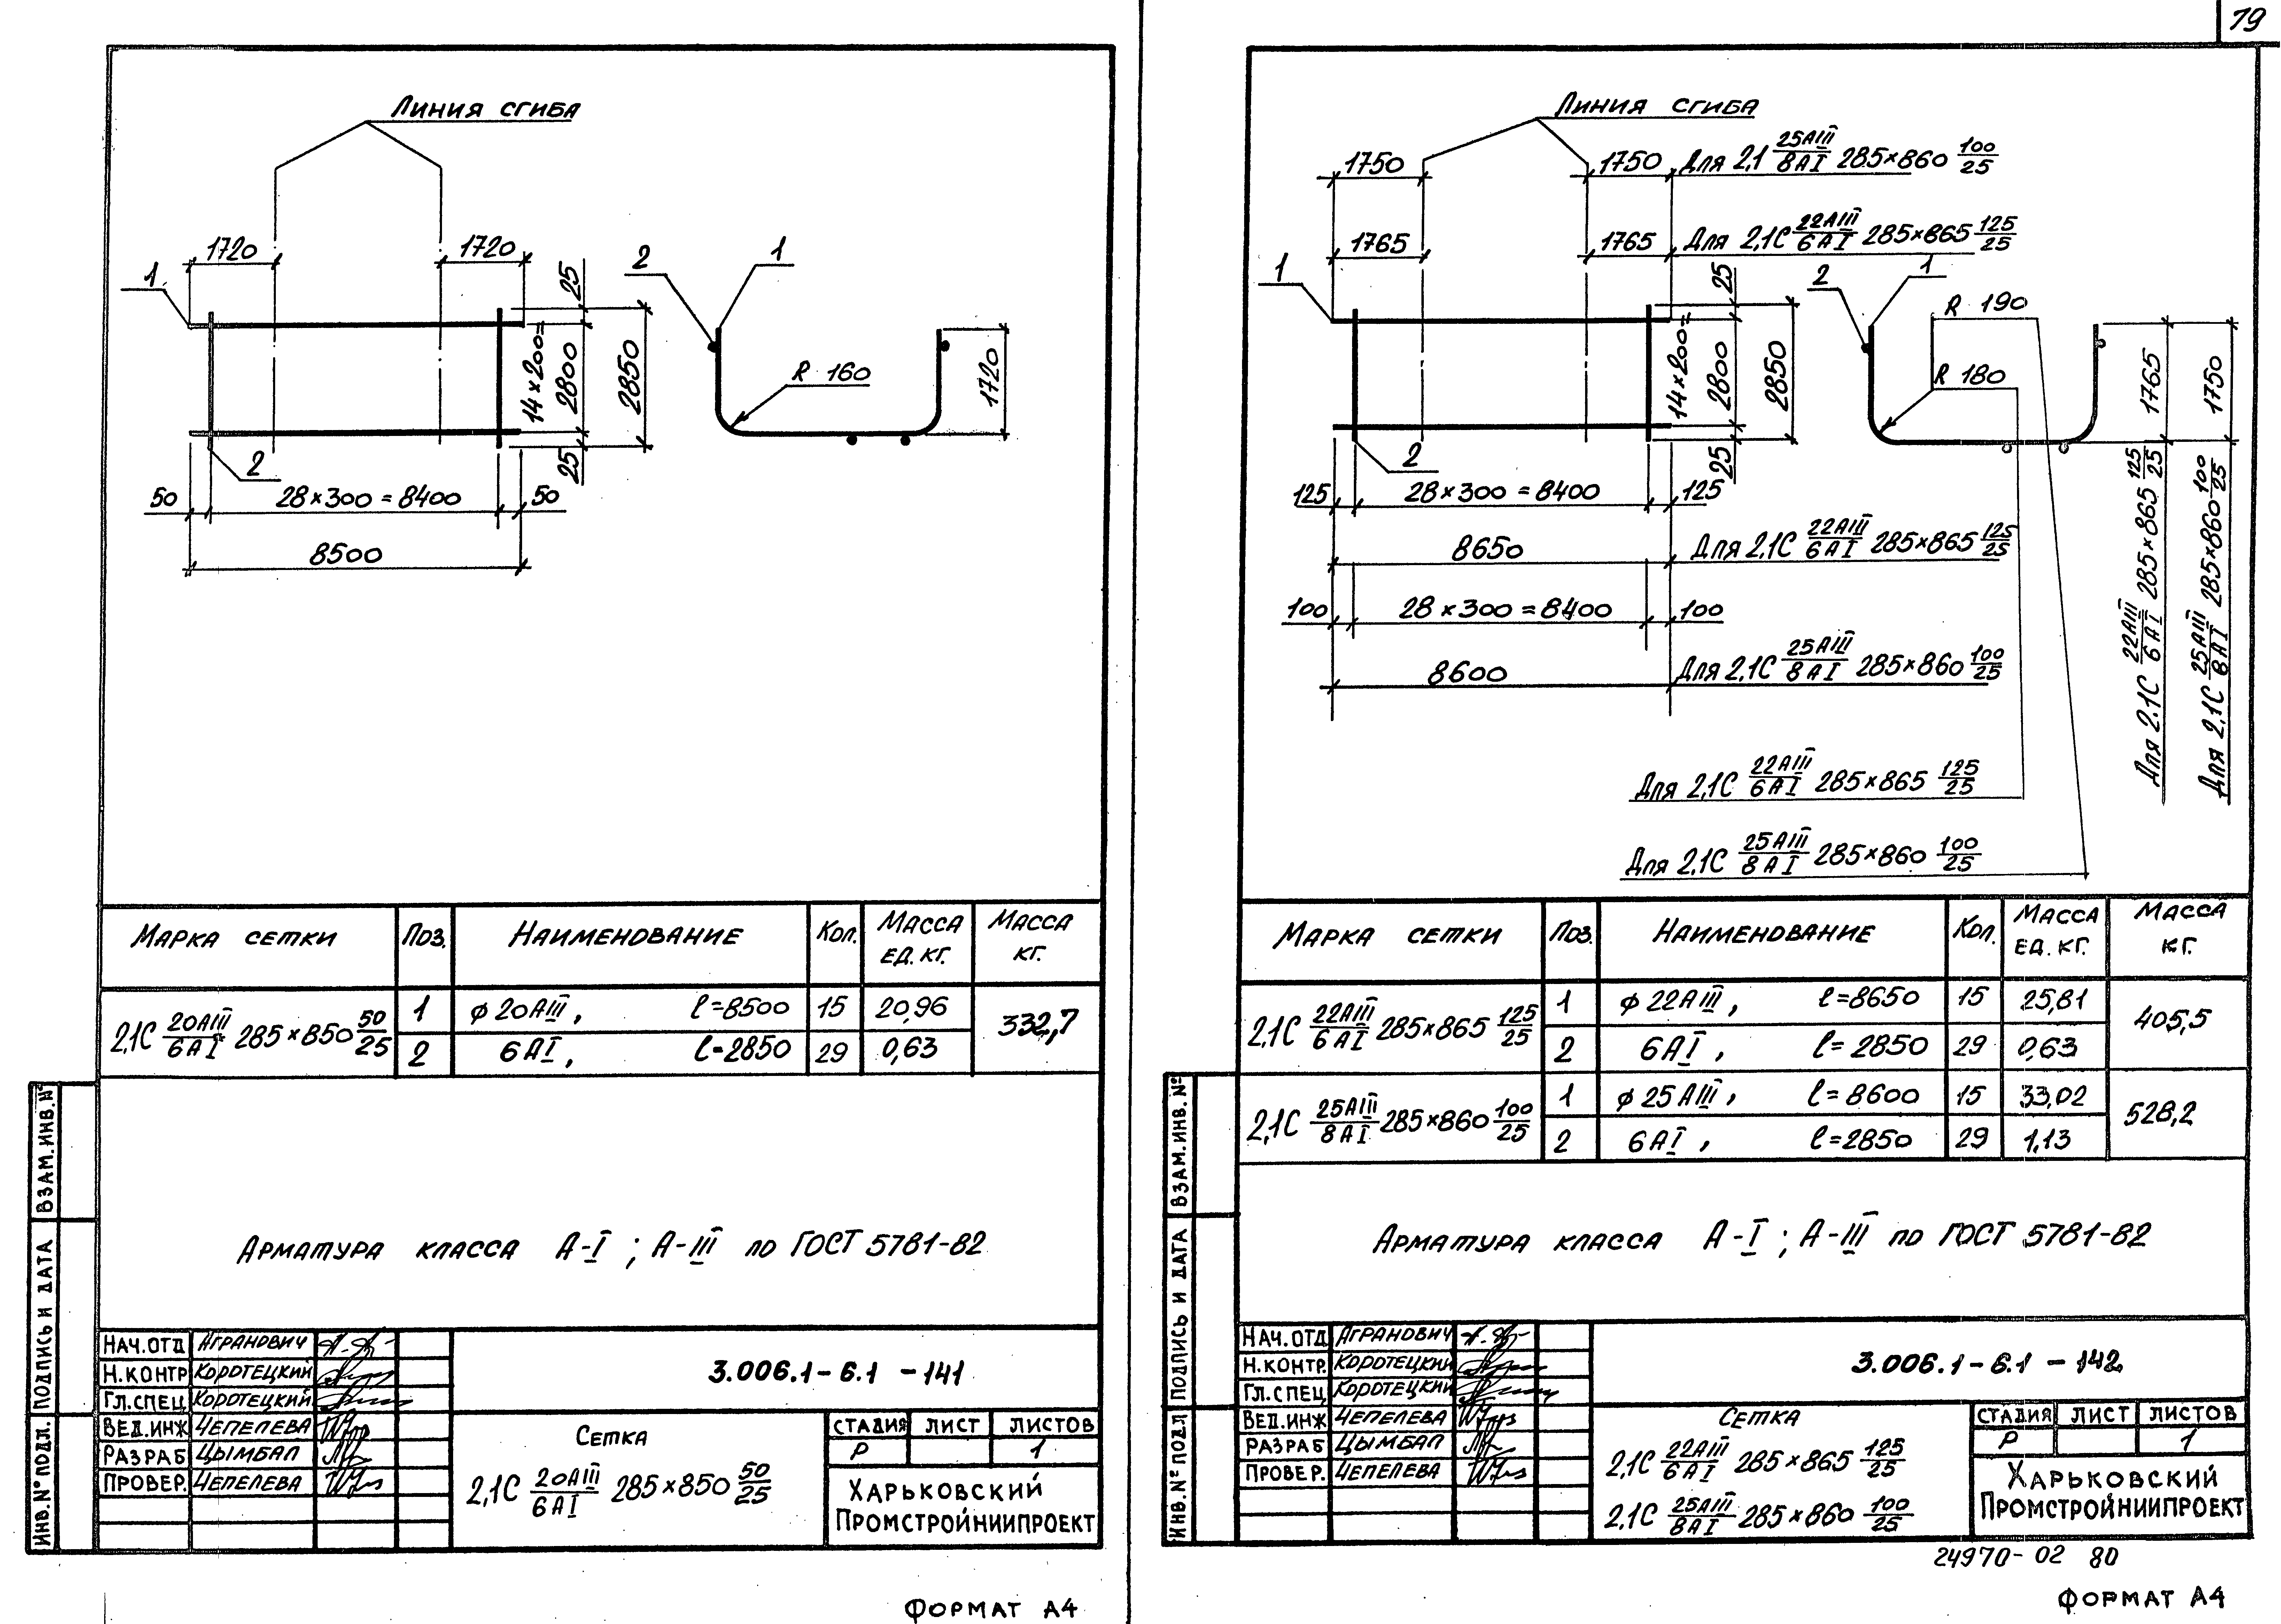 79
Линия сгиба
1720
1720
1
2
1
25
14×200=
2800
2850
25
R 160
1720
2
50
28×300=8400
50
8500
Марка сетки Поз. Наименование Кол. Масса ед. кг. Масса кг.
2,1С 20АIII/6АI 285×850 50/25 1 ϕ20АIII, ℓ=8500 15 20,96 332,7
2 6АI, ℓ=2850 29 0,63
Арматура класса А-I; А-III по ГОСТ 5781-82
Взам.инв.№
Подпись и дата
Инв.№ подл.
Нач.отд Агранович
Н.контр Коротецкий
Гл.спец Коротецкий
Вед.инж Чепелева
Разраб Цымбал
Провер. Чепелева
3.006.1-6.1 -141
Сетка
2,1С 20АIII/6АI 285×850 50/25
стадия лист листов
Р 1
Харьковский
Промстройниипроект
Формат А4
Линия сгиба
1750
1750
Для 2,1 25АIII/8АI 285×860 100/25
1765
1765
Для 2,1С 22АIII/6АI 285×865 125/25
1
2
1
25
14×200=
2800
2850
25
R 190
R 180
1765
1750
2
125
28×300=8400
125
8650
Для 2,1С 22АIII/6АI 285×865 125/25
100
28×300=8400
100
8600
Для 2,1С 25АIII/8АI 285×860 100/25
Для 2,1С 22АIII/6АI 285×865 125/25
Для 2,1С 25АIII/8АI 285×860 100/25
Для 2.1С 22АIII/6АI 285×865 125/25
Для 2,1С 25АIII/8АI 285×860 100/25
Марка сетки Поз. Наименование Кол. Масса ед. кг. Масса кг.
2,1С 22АIII/6АI 285×865 125/25 1 ϕ22АIII, ℓ=8650 15 25,81 405,5
2 6АI, ℓ=2850 29 0,63
2,1С 25АIII/8АI 285×860 100/25 1 ϕ25АIII, ℓ=8600 15 33,02 528,2
2 6АI, ℓ=2850 29 1,13
Арматура класса А-I; А-III по ГОСТ 5781-82
Взам.инв.№
Подпись и дата
Инв.№ подл
Нач.отд Агранович
Н.контр. Коротецкий
Гл.спец Коротецкий
Вед.инж Чепелева
Разраб Цымбал
Провер. Чепелева
3.006.1-6.1 -142
Сетка
2,1С 22АIII/6АI 285×865 125/25
2,1С 25АIII/8АI 285×860 100/25
стадия лист листов
Р 1
Харьковский
Промстройниипроект
24970-02 80
Формат А4